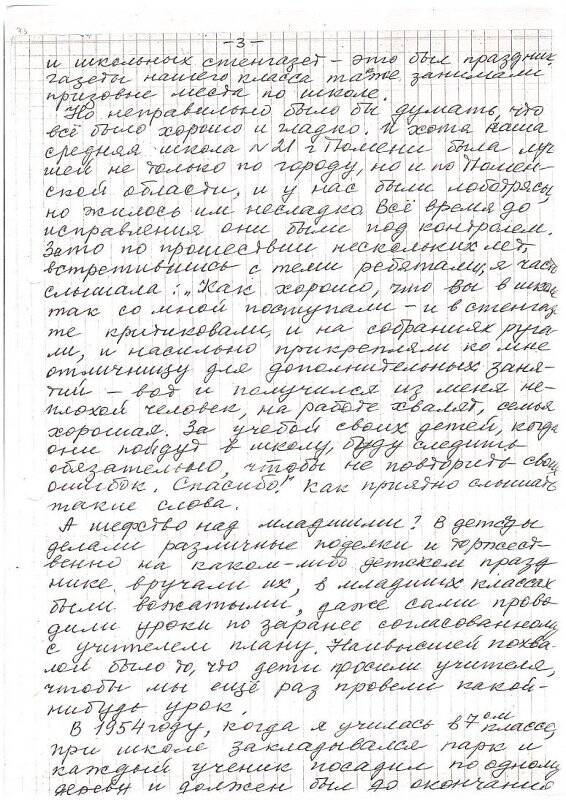 - 3 -
и школьных стенгазет - это был праздник,
газеты нашего класса также занимали
призовые места по школе.
Но неправильно было бы думать, что
всё было хорошо и гладко. И хотя наша
средняя школа N 21 г Тюмени была луч
шей не только по городу, но и по Тюмен-
ской области, и у нас были лоботрясы,
но жилось им несладко. Всё время до
исправления они были под контролем.
Зато по прошествии нескольких лет,
встретившись с теми ребятами, я часто
слышала: "Как хорошо, что вы в школе
так со мной поступали - и в стенгазе
те критиковали, и на собраниях руга
ли, и насильно прикрепляли ко мне
отличницу для дополнительных заня-
тий - вот и получился из меня не-
плохой человек, на работе хвалят, семья
хорошая. За учёбой своих детей, когда
они пойдут в школу, буду следить
обязательно, чтобы не повторить своих
ошибок. Спасибо!" Как приятно слышать
такие слова.
А шефство над младшими? В детсады
делали различные поделки и торжест-
венно на каком-либо детском празд
нике вручали их, в младших классах
были вожатыми, даже сами прово
дили уроки по заранее согласованному
с учителем плану. Наивысшей похва
лой было то, что дети просили учителя,
чтобы мы ещё раз провели какой-
нибудь урок.
В 1954 году, когда я училась в 7ом классе,
при школе закладывался парк и
каждый ученик посадил по одному
дереву и должен был до окончания